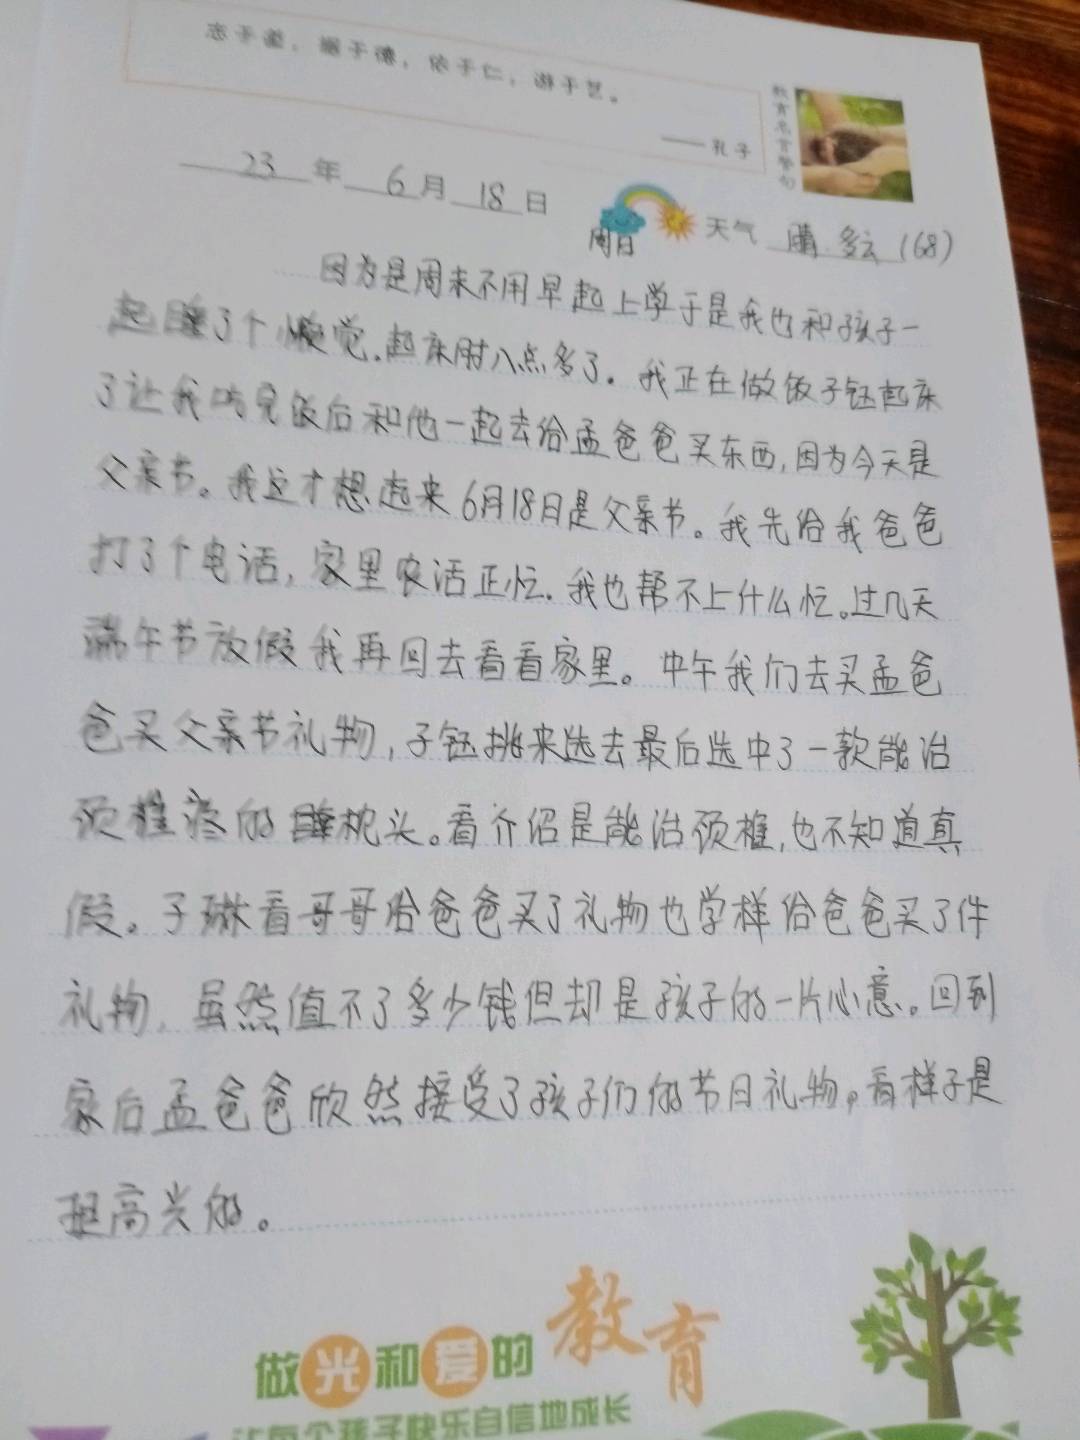 志于道，据于德，依于仁，游于艺。
——孔子
教育名言警句
23年6月18日
周日
天气 晴 多云 (68)
因为是周末不用早起上学于是我也和孩子一
起睡了个懒觉.起床时八点多了。我正在做饭子钰起床
了让我吃完饭后和他一起去给孟爸爸买东西,因为今天是
父亲节。我这才想起来6月18日是父亲节。我先给我爸爸
打了个电话,家里农活正忙.我也帮不上什么忙。过几天
端午节放假我再回去看看家里。中午我们去买孟爸
爸买父亲节礼物,子钰挑来选去最后选中了一款能治
颈椎疼的睡枕头。看介绍是能治颈椎,也不知道真
假。子琳看哥哥给爸爸买了礼物也学样给爸爸买了件
礼物,虽然值不了多少钱但却是孩子的一片心意。回到
家后孟爸爸欣然接受了孩子们的节日礼物。看样子是
挺高兴的。
做光和爱的教育
让每个孩子快乐自信地成长